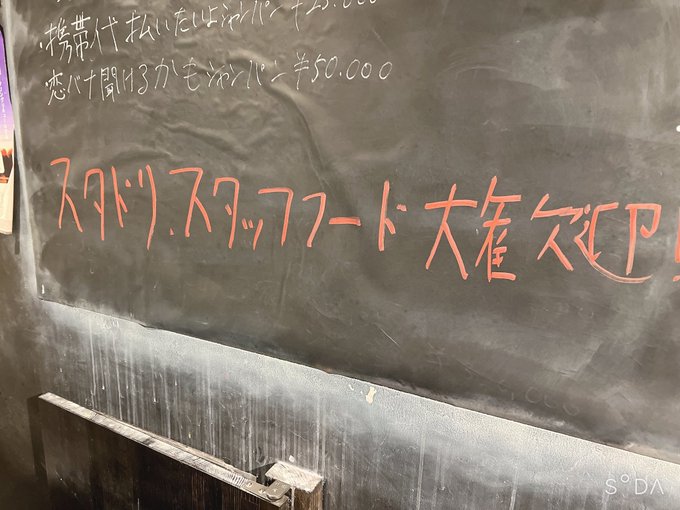 携帯代払いたいよシャンパン ¥25.000
恋バナ聞けるかもシャンパン ¥50.000
スタドリ、スタッフフード大歓迎!
SODA